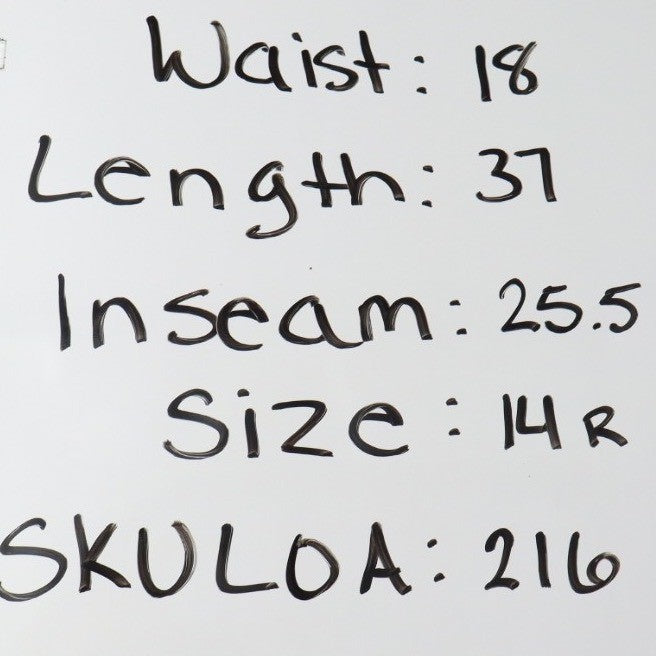 Waist: 18
Length: 37
Inseam: 25.5
Size: 14R
SKULOA: 216